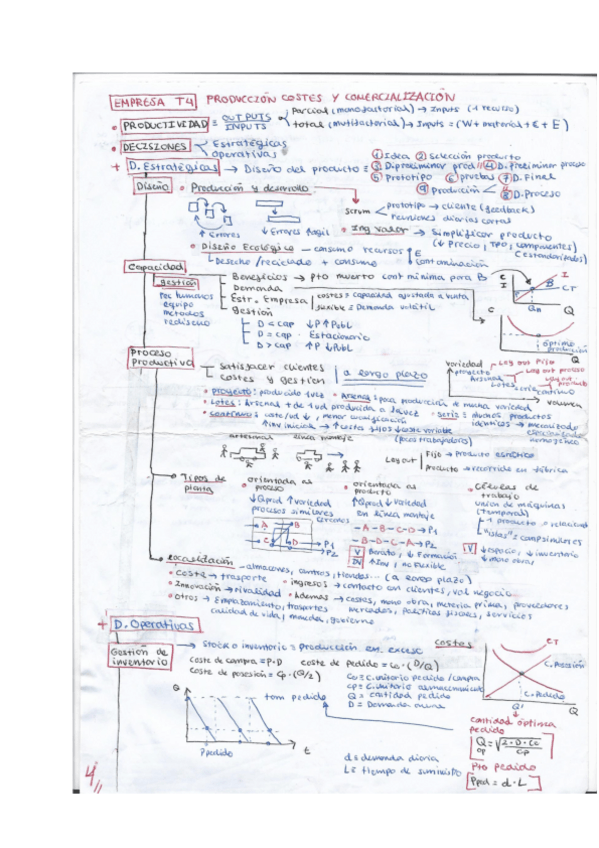 EMPRESA T4 PRODUCCIÓN COSTES Y COMERCIALIZACIÓN
• PRODUCTIVIDAD = OUTPUTS / INPUTS
parcial (monofactorial) → Inputs (1 recurso)
total (multifactorial) → Inputs = (W + material + € + E)
• DECISIONES
Estratégicas
Operativas
+ D. Estratégicas → Diseño del producto =
① Idea ② Selección producto
③ D. preliminar prod ④ D. Preeliminar proceso
⑤ Prototipo ⑥ pruebas ⑦ D. Final
⑨ Producción ⑧ D. Proceso
Diseño • Producción y desarrollo
Scrum
prototipo → cliente (feedback)
reuniones diarias cortas
↑ Errores ↓ Errores Agil
• Ing valor → Simplificar producto
(↓ Precio, TPO, componentes)
(estandarizados)
• Diseño Ecológico – consumo recursos
E
contaminación
Deseche / reciclado + consumo
Capacidad
gestión
Rec humanos
equipo
metodos
rediseño
Beneficios → Pto muerto cant minima para B
Demanda
Estr. Empresa
costes = capacidad ajustada a venta
flexible = Demanda volátil
gestión
D < cap ↓P ↑Publ
D = cap - Estacionario
D > cap ↑P ↓Publ
C
I
I
B
CT
Qn
Q
C
óptimo
producción
Q
Proceso
Productivo
Satisfacer clientes
costes y gestion
a largo plazo
variedad
proyecto
Arsenal
Lotes
serie
continuo
volumen
Lay out Fijo
Lay out proceso
Lay out
producto
• Proyecto: producido 1 vez
• Lotes: Arsenal + de 1 ud producida a la vez
• Serie = muchos productos
identicos → mecanizado
• Continuo: cate/ud ↓, menor
↑ Inv inicial → ↑ costes fijos ↓ coste variable
(pocos trabajadores)
artesanal linea montaje
Lay out
Fijo → Producto estático
Producto → recorrido en fábrica
• Tipos de
planta
• orientada al
proceso
↓Qprod ↑variedad
procesos similares
cercanos
A B
C D
P1
P2
• orientada al
producto
↑Qprod ↓variedad
En linea montaje
-A-B-C-D→P1
-B-D-C-A→P2
V Barato, ↓ Formación
↑ Inv, no flexible
• Células de
trabajo
union de maquinas
(temporal)
V ↓ espacio, ↓ inventario
↓ mano obra,
• Localización – almacenes, centros, tiendas... (a largo plazo)
• Coste → trasporte
• Ingresos → contacto con clientes, val negocio
• Innovación → rivalidad
• Ademas → costes, mano obra, materia prima, proveedores
mercados, Politicas fiscales, servicios
• otros → Emplazamiento, trasportes
calidad de vida, moneda, gobierno
+ D. Operativas
Gestión de
inventario
→ Stock o inventario = producción en exceso
costes
coste de compra = P·D coste de pedido = Co·(D/Q)
Coste de posesión = Cp·(Q/2)
Co = C. unitario pedido / compra
Cp = C. unitario almacenamiento
Q = cantidad pedido
D = Demanda
CT
C. Posesión
C. Pedido
Q'
Q
Q
tam pedido
Ppedido
t
d = demanda diaria
L = tiempo de suministro
Cantidad óptima
pedido
Qop = √(2·D·Co / Cp)
Pto pedido
Pped = d·L
4